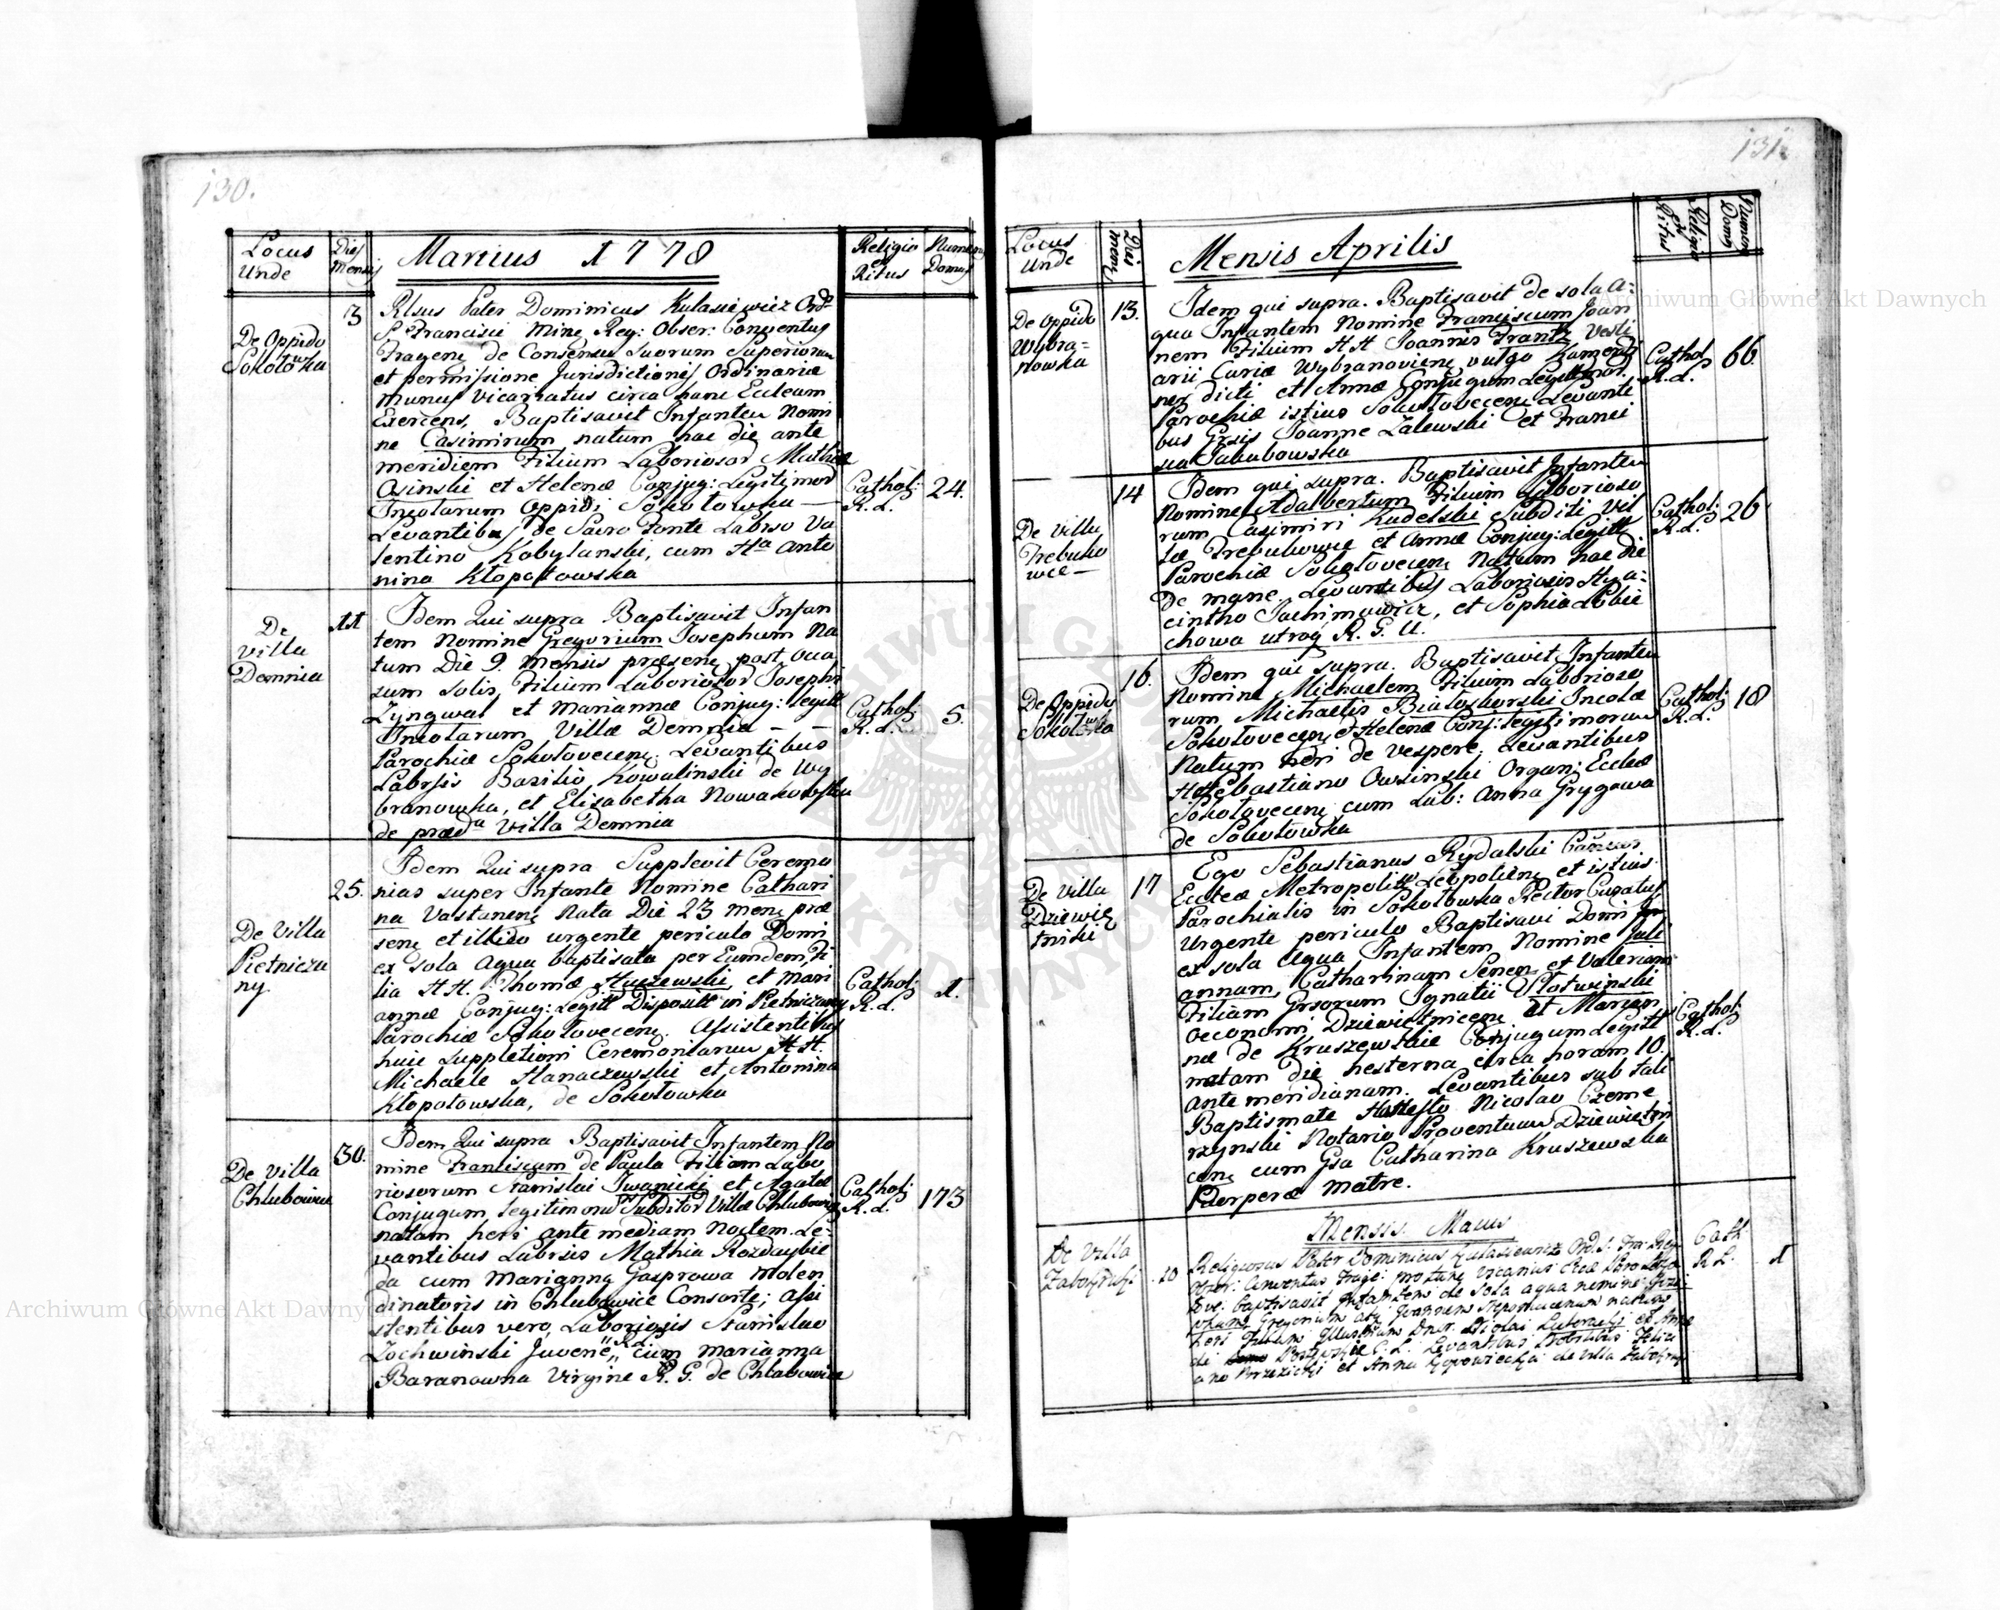 130.
Locus Unde
Dies Mensis
Martius 1778
Religio et Ritus
Numerus Domus
De Oppido Sokołowka
3
Rlsus Pater Dominicus Kulasiewicz Ord:
S. Francisci Min: Reg: Obser: Conventus
Fragen: de Consensu suorum Superiorum
et permissione Jurisdictionis Ordinariæ
munus Vicariatus circa hanc Eccleam
Exercens, Baptisavit Infantem Nomi
ne Casimirum natum hac die ante
meridiem Filium Laboriosor Mathiæ
Osinski et Helenæ Conjug: Legitimor
Incolarum Oppidi Sokołowka
Levantibus de Sacro Fonte Labrso Va
lentino Kobylanski, cum Ha Anto
nina Kłopotowska
Cathol:
R. L.
24.
De Villa Demnia
11
Idem Qui supra Baptisavit Infan
tem Nomine Gregorium Josephum Na
tum Die 9. Mensis præsen: post Occa
sum Solis, Filium Laboriosor Josephi
Zyngwal et Mariannæ Conjug: legitt
Incolarum Villæ Demnia
Parochiæ Sokołovecen: Levantibus
Labrsis Bazilio Kowalinski de Wy
branowka, et Elisabetha Nowakowska
de præda Villa Demnia
Cathol:
R. L.
5.
De Villa Pietniczany
25.
Idem Qui supra Supplevit Ceremo
nias super Infante Nomine Cathari
na Vastanen: Nata Die 23 men: præ
sen: et illico urgente periculo Domi
ex sola Aqua baptisata per Eumdem, Fi
lia HH. Thomæ Huszewski, et Mari
annæ Conjug: Legitt Disposit in Pietniczany
Parochiæ Sokołovecen: Assistentibus
huic Suppletioni Ceremoniarum HH.
Michaele Hanaczewski et Antonina
Kłopotowska, de Sokołowka
Cathol:
R. L.
1.
De Villa Chlebowice
30.
Idem Qui supra Baptisavit Infantem No
mine Franciscum de Paula Filiam Labo
riosorum Stanislai Iwanicki et Agatæ
Conjugum legitimorū Subditor Villæ Chlebowice
natam heri ante mediam Noctem. Le
vantibus Labrsis Mathia Rozdaybie
da cum Marianna Gasprowa Molen
dinatoris in Chlebowice Consorte; Assi
stentibus vero Laboriosis Stanislao
Zochwinski Juvene R.L. cum Marianna
Baranowna Virgine R. G. de Chlebowice
Cathol:
R. L.
173
131.
Locus Unde
Dies mens:
Mensis Aprilis
Religio et Ritus
Numerus Domus
De Oppido Wybranowka
13.
Idem qui supra. Baptisavit de sola A
qua Infantem Nomine Franciscum Joan
nem Filium HH Joannis Frantz Vesti
arii Curiæ Wybranovien: vulgo Kamerdi
ner dicti et Annæ Conjugum Legittimor.
Parochiæ istius Sokołovecen: Levanti
bus Grsis Joanne Zalewski et Franci
sca Jakubowska
Cathol:
R. L.
66.
De Villa Trebuhowce
14
Idem qui supra. Baptisavit Infantem
Nomine Adalbertum Filium Laborioso
rum Casimiri Kudelski Subditi Vil
læ Trebuhowce et Annæ Conjug: Legitt
Parochiæ Sokołovecen: Natum hac die
de mane. Levantibus Laboriosis Hya
cintho Jachimowicz, et Sophia Lebie
chowa utroq R. G. U.
Cathol:
R. L.
26
De Oppido Sokołowka
16.
Idem qui supra. Baptisavit Infantem
Nomine Michaelem Filium Laborioso
rum Michaelis Białoskorski Incolæ
Sokołovecen: et Helenæ Conj: legitimorum
Natum heri de vespere. Levantibus
H Sebastiano Owsinski Organ: Eccleæ
Sokołovecen: cum Lab: Anna Grygowa
de Sokołowka
Cathol:
R. L.
18
De Villa Dziewiętniki
17
Ego Sebastianus Rydalski Canonicus
Eccleæ Metropolitæ Leopolien: et istius
Parochialis in Sokołowka Rector Curatus
Urgente periculo Baptisavi Domi
ex sola Aqua Infantem Nomine Juli
annam, Catharinam Senen: et Valeriam
Filiam Grsorum Ignatii Płotwinski
Oeconomi Dziewiętnicen: et Marian
næ de Kruszewskie Conjugum Legitt
natam die hesterna circa horam 10.
ante meridianam. Levantibus sub tali
Baptismate Honesto Nicolao Czeme
rzynski Notario Proventuum Dziewiętni
cen: cum Gsa Catharina Kruszewska
Puerperæ Matre.
Cathol:
R. L.
Mensis Maius
De Villa
10
Religiosus Pater Dominicus Kulasiewicz Ord. S. Fra: Reg:
Obser: Conventus Frage: pro tunc Vicarius
baptisavit Infantem de sola aqua nomine
Gregorium Joannem Nepomucenum natum
heri Filium Illustrium Dnor. Nicolai et Annæ
Levantibus Nobilibus Felici
ano Brzezicki et Anna de Villa
Cath:
R L.
1
Archiwum Główne Akt Dawnych
Archiwum Główne Akt Dawnych
ARCHIWUM GŁÓWNE AKT DAWNYCH